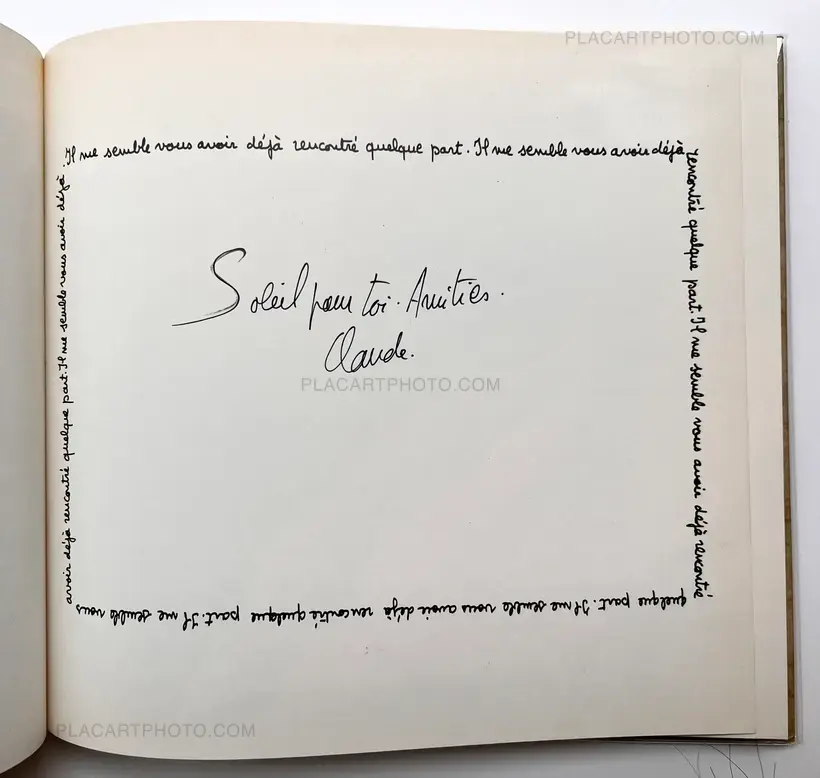 PLACARTPHOTO.COM
Il me semble vous avoir déjà rencontré quelque part. Il me semble vous avoir déjà
rencontré quelque part. Il me semble vous avoir déjà rencontré
quelque part. Il me semble vous avoir déjà rencontré quelque part. Il me semble vous
avoir déjà rencontré quelque part. Il me semble vous avoir déjà.
Soleil pour toi. Amitiés.
Claude.
PLACARTPHOTO.COM
PLACARTPHOTO.COM